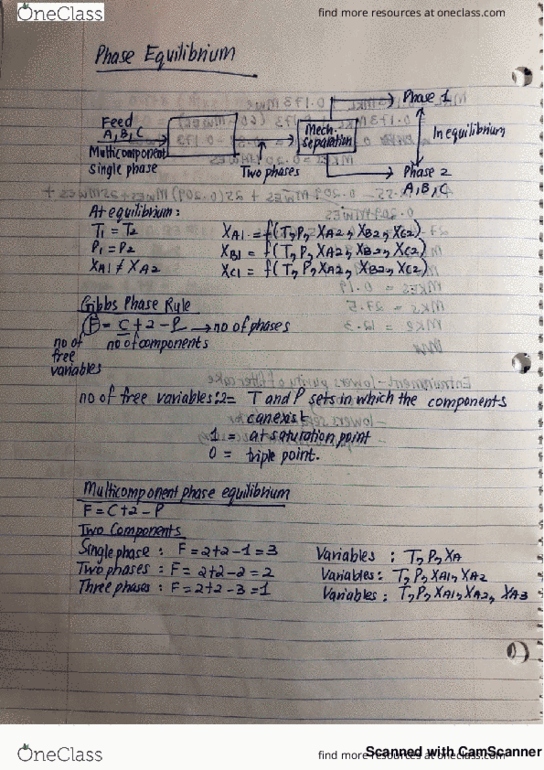 OneClass
find more resources at oneclass.com
Phase Equilibrium
Feed
A, B, C
Multicomponent
single phase
Two phases
Mech.
separation
Phase 1
In equilibrium
Phase 2
A, B, C
At equilibrium:
T1 = T2
P1 = P2
XA1 ≠ XA2
XA1 = f(T, P, XA2, XB2, XC2)
XB1 = f(T, P, XA2, XB2, XC2)
XC1 = f(T, P, XA2, XB2, XC2)
Gibbs Phase Rule
F = C + 2 - P → no of phases
no of free variables
no of components
no of free variables: 2 = T and P sets in which the components
can exist
1 = at saturation point
0 = triple point.
Multicomponent phase equilibrium
F = C + 2 - P
Two Components
Single phase : F = 2+2-1 = 3 Variables : T, P, XA
Two phases : F = 2+2-2 = 2 Variables : T, P, XA1, XA2
Three phases : F = 2+2-3 = 1 Variables : T, P, XA1, XA2, XA3
OneClass
find more resources at oneclass.com
Scanned with CamScanner